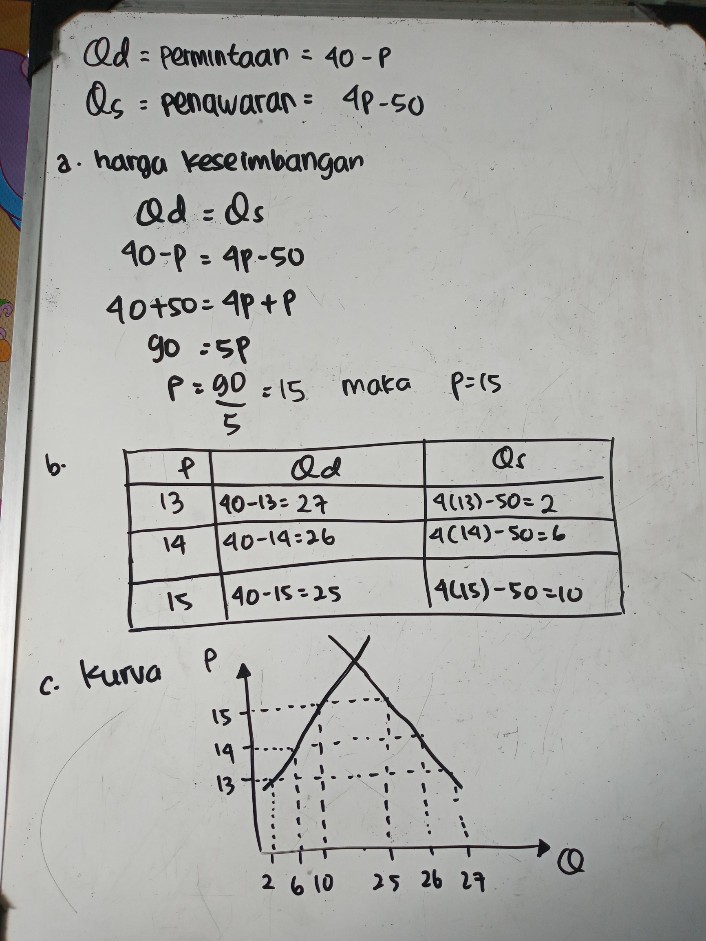 Qd = permintaan = 40 - P
Qs = penawaran = 4P-50
a. harga keseimbangan
Qd = Qs
40-P = 4P-50
40+50 = 4P+P
90 = 5P
P = 90/5 = 15 maka P=15
b.
P Qd Qs
13 40-13=27 4(13)-50=2
14 40-14=26 4(14)-50=6
15 40-15=25 4(15)-50=10
c. kurva P
15
14
13
2 6 10 25 26 27 Q